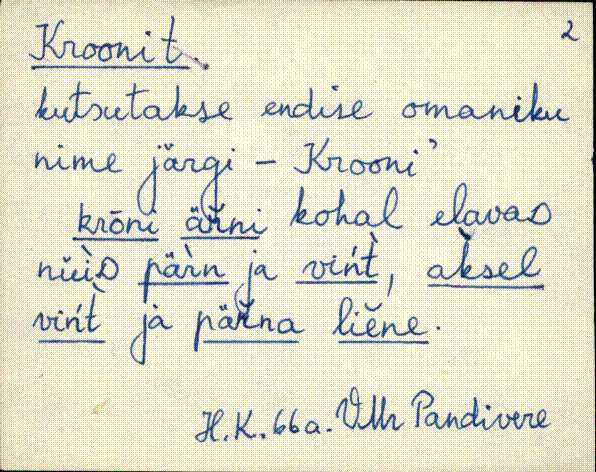 2
Kroonit.
kutsutakse endise omaniku
nime järgi – Krooni’
krōni äřńi kohal elavaD
nüìD pàrn ja vińt̀, aksel
vińt̀ ja pär̆na liĕne.
H.K. 66a. VMr Pandivere